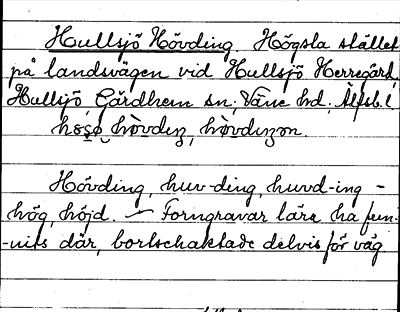 Hullsjö Hövding. Högsta stället
på landsvägen vid Hullsjö Herregård,
Hullsjö, Gärdhem sn, Väne hd, Älfsb. l
hövdıŋ, hövdıŋən.
Hövding, huv-ding, huvd-ing -
hög, höjd. — Forngravar lära ha fun-
-nits där, bortschaktade delvis för väg